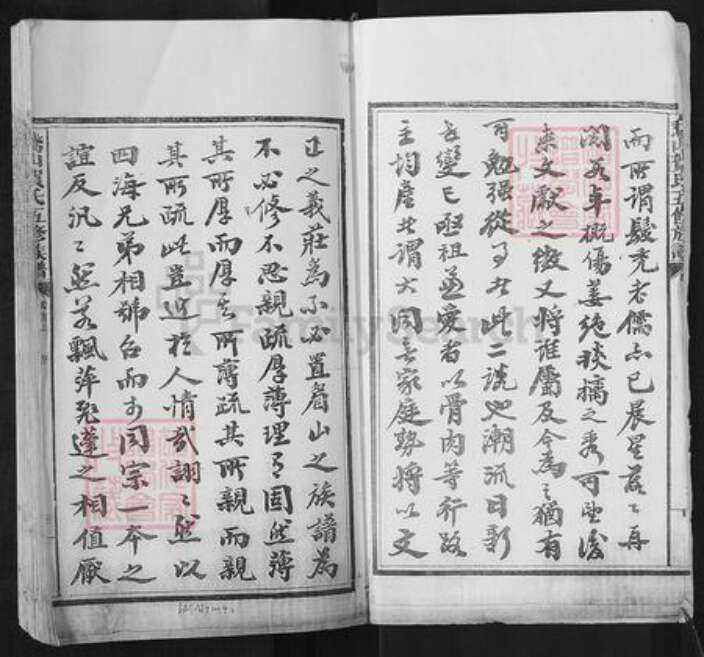 而所謂髮禿老儒亦已晨星落〻再
閱若年概傷萎絕琰擒之秀可望後
來文獻之徵又將誰屬及今為之猶有
可勉強從事者此二說也潮流日新
世變已亟祖愛者以骨肉等行路
主均產者謂大同無家庭勢將以文
正之義莊為不必置眉山之族譜為
不必修不思親疏厚薄理有固然薄
其所厚而厚其所薄疏其所親而親
其所疏此豈近於人情哉詡〻然以
四海兄弟相號召而於同宗一本之
誼反汎〻然若飄萍飛蓬之相值厭
賀氏五修族譜
FamilySearch